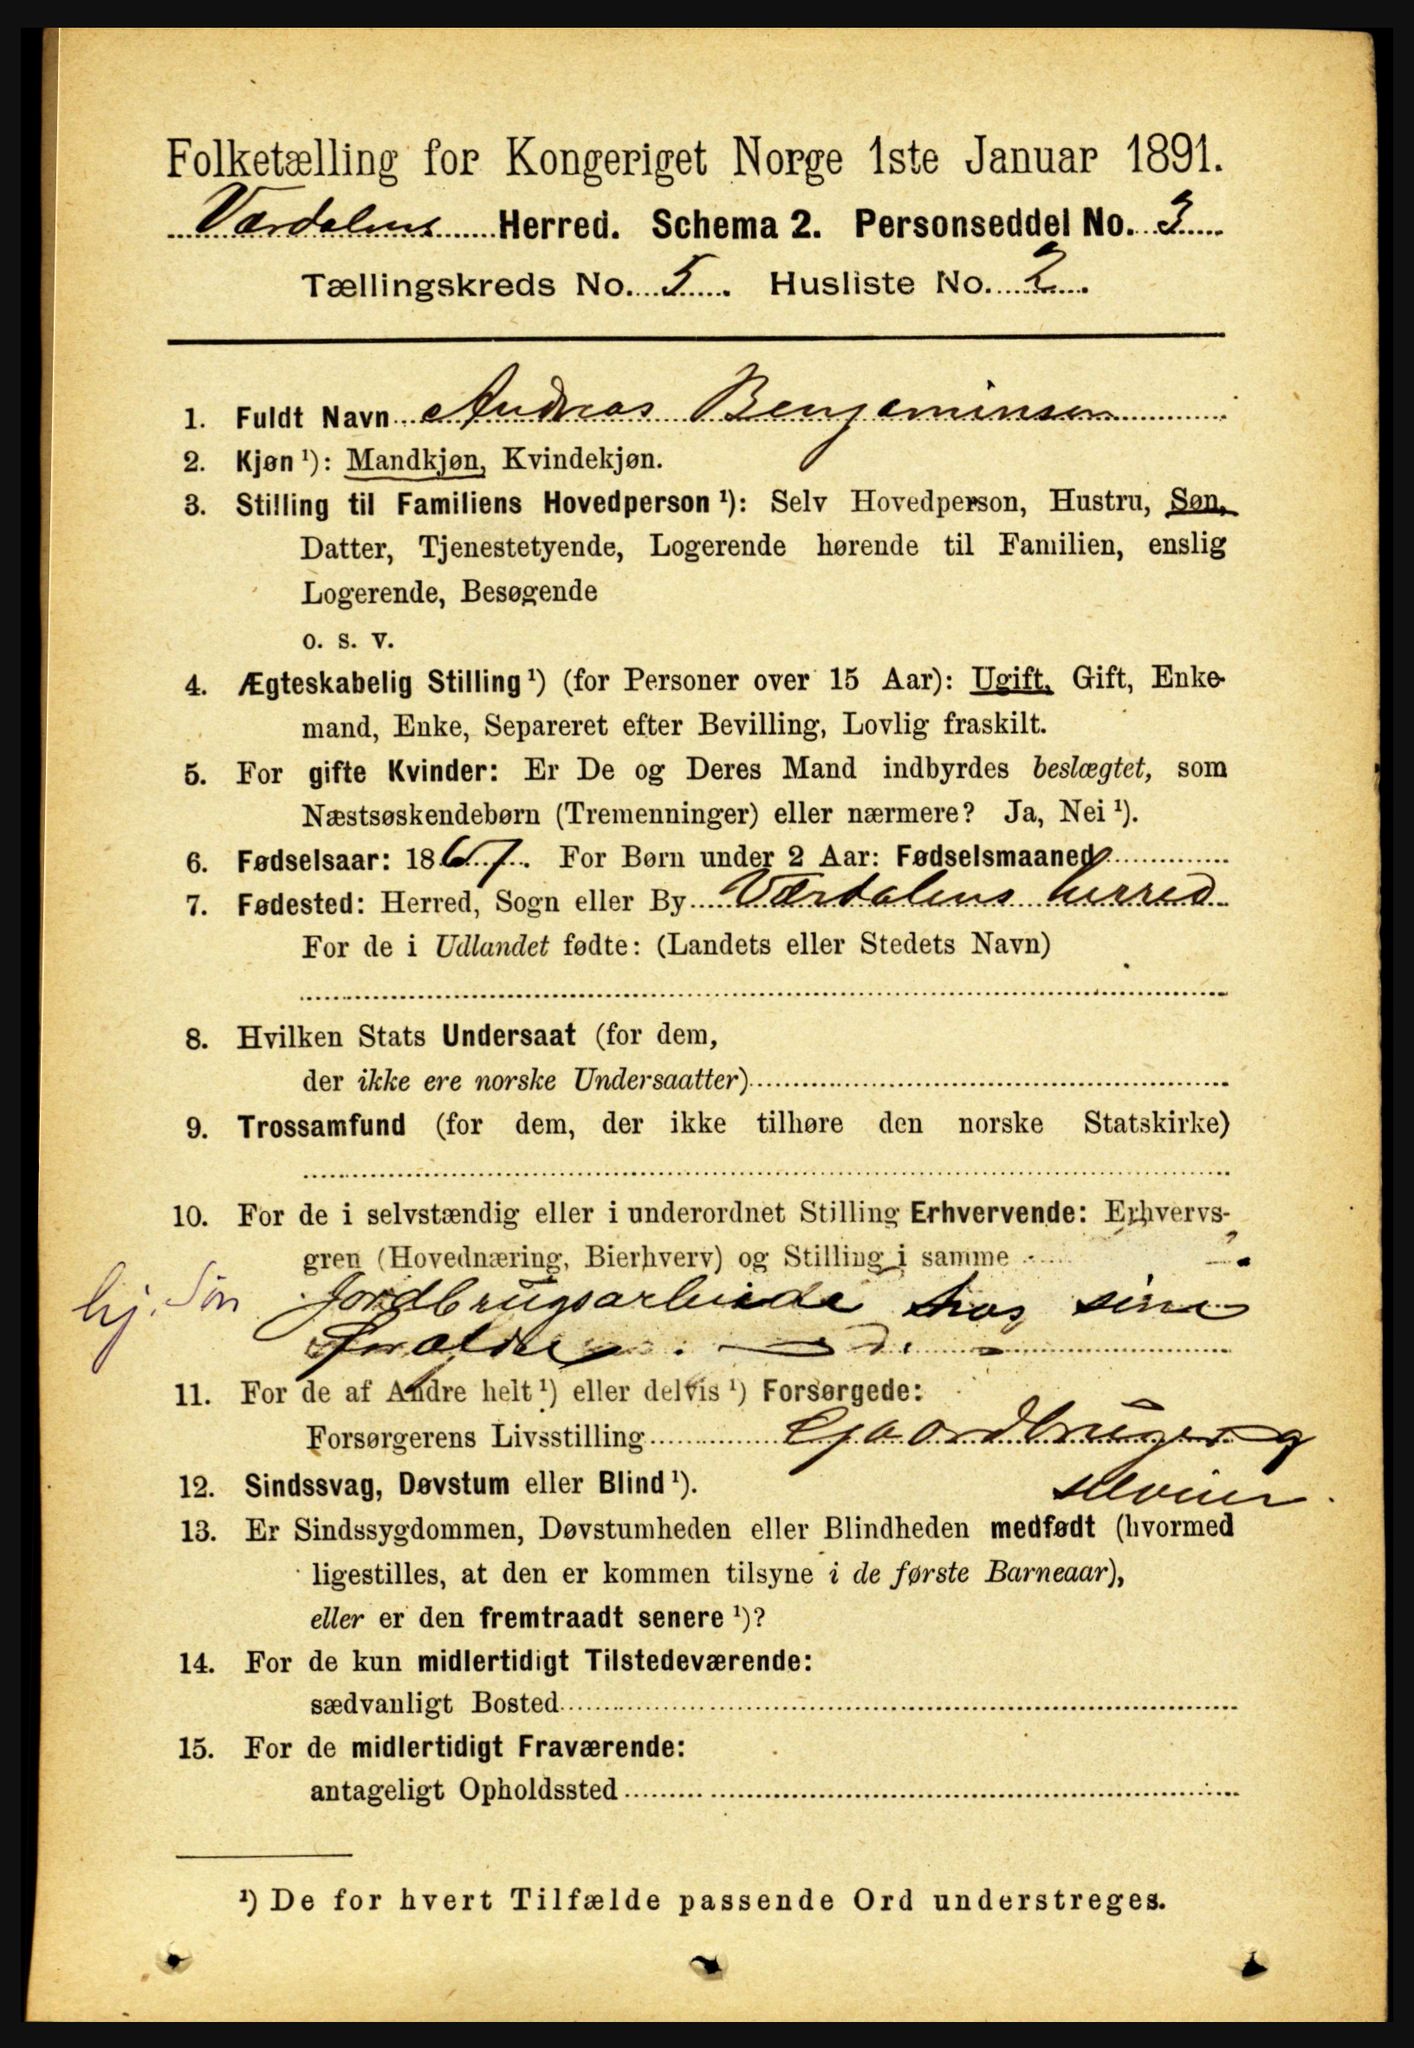 Folketælling for Kongeriget Norge 1ste Januar 1891.
Værdalens Herred. Schema 2. Personseddel No. 3
Tællingskreds No. 5. Husliste No. 2.
1. Fuldt Navn Andreas Benjaminsen
2. Kjøn ¹): Mandkjøn, Kvindekjøn.
3. Stilling til Familiens Hovedperson ¹): Selv Hovedperson, Hustru, Søn,
Datter, Tjenestetyende, Logerende hørende til Familien, enslig
Logerende, Besøgende
o. s. v.
4. Ægteskabelig Stilling ¹) (for Personer over 15 Aar): Ugift, Gift, Enke-
mand, Enke, Separeret efter Bevilling, Lovlig fraskilt.
5. For gifte Kvinder: Er De og Deres Mand indbyrdes beslægtet, som
Næstsøskendebørn (Tremenninger) eller nærmere? Ja, Nei ¹).
6. Fødselsaar: 1867. For Børn under 2 Aar: Fødselsmaaned
7. Fødested: Herred, Sogn eller By Værdalens herred
For de i Udlandet fødte: (Landets eller Stedets Navn)
8. Hvilken Stats Undersaat (for dem,
der ikke ere norske Undersaatter)
9. Trossamfund (for dem, der ikke tilhøre den norske Statskirke)
10. For de i selvstændig eller i underordnet Stilling Erhvervende: Erhvervs-
gren (Hovednæring, Bierhverv) og Stilling i samme
hj. Søn Jordbrugsarbeide hos sine
foræld­re
11. For de af Andre helt ¹) eller delvis ¹) Forsørgede:
Forsørgerens Livsstilling Gaardbruger og
selveier
12. Sindssvag, Døvstum eller Blind ¹).
13. Er Sindssygdommen, Døvstumheden eller Blindheden medfødt (hvormed
ligestilles, at den er kommen tilsyne i de første Barneaar),
eller er den fremtraadt senere ¹)?
14. For de kun midlertidigt Tilstedeværende:
sædvanligt Bosted
15. For de midlertidigt Fraværende:
antageligt Opholdssted
¹) De for hvert Tilfælde passende Ord understreges.